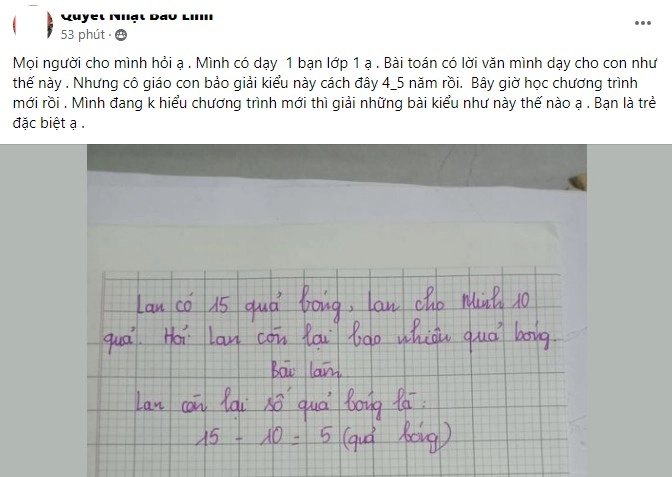 Quyết Nhật Bảo Linh
53 phút ·
Mọi người cho mình hỏi ạ . Mình có dạy 1 bạn lớp 1 ạ . Bài toán có lời văn mình dạy cho con như
thế này . Nhưng cô giáo con bảo giải kiểu này cách đây 4_5 năm rồi. Bây giờ học chương trình
mới rồi . Mình đang k hiểu chương trình mới thì giải những bài kiểu như này thế nào ạ . Bạn là trẻ
đặc biệt ạ .
Lan có 15 quả bóng, Lan cho Minh 10
quả. Hỏi Lan còn lại bao nhiêu quả bóng.
Bài làm
Lan còn lại số quả bóng là:
15 - 10 = 5 (quả bóng)